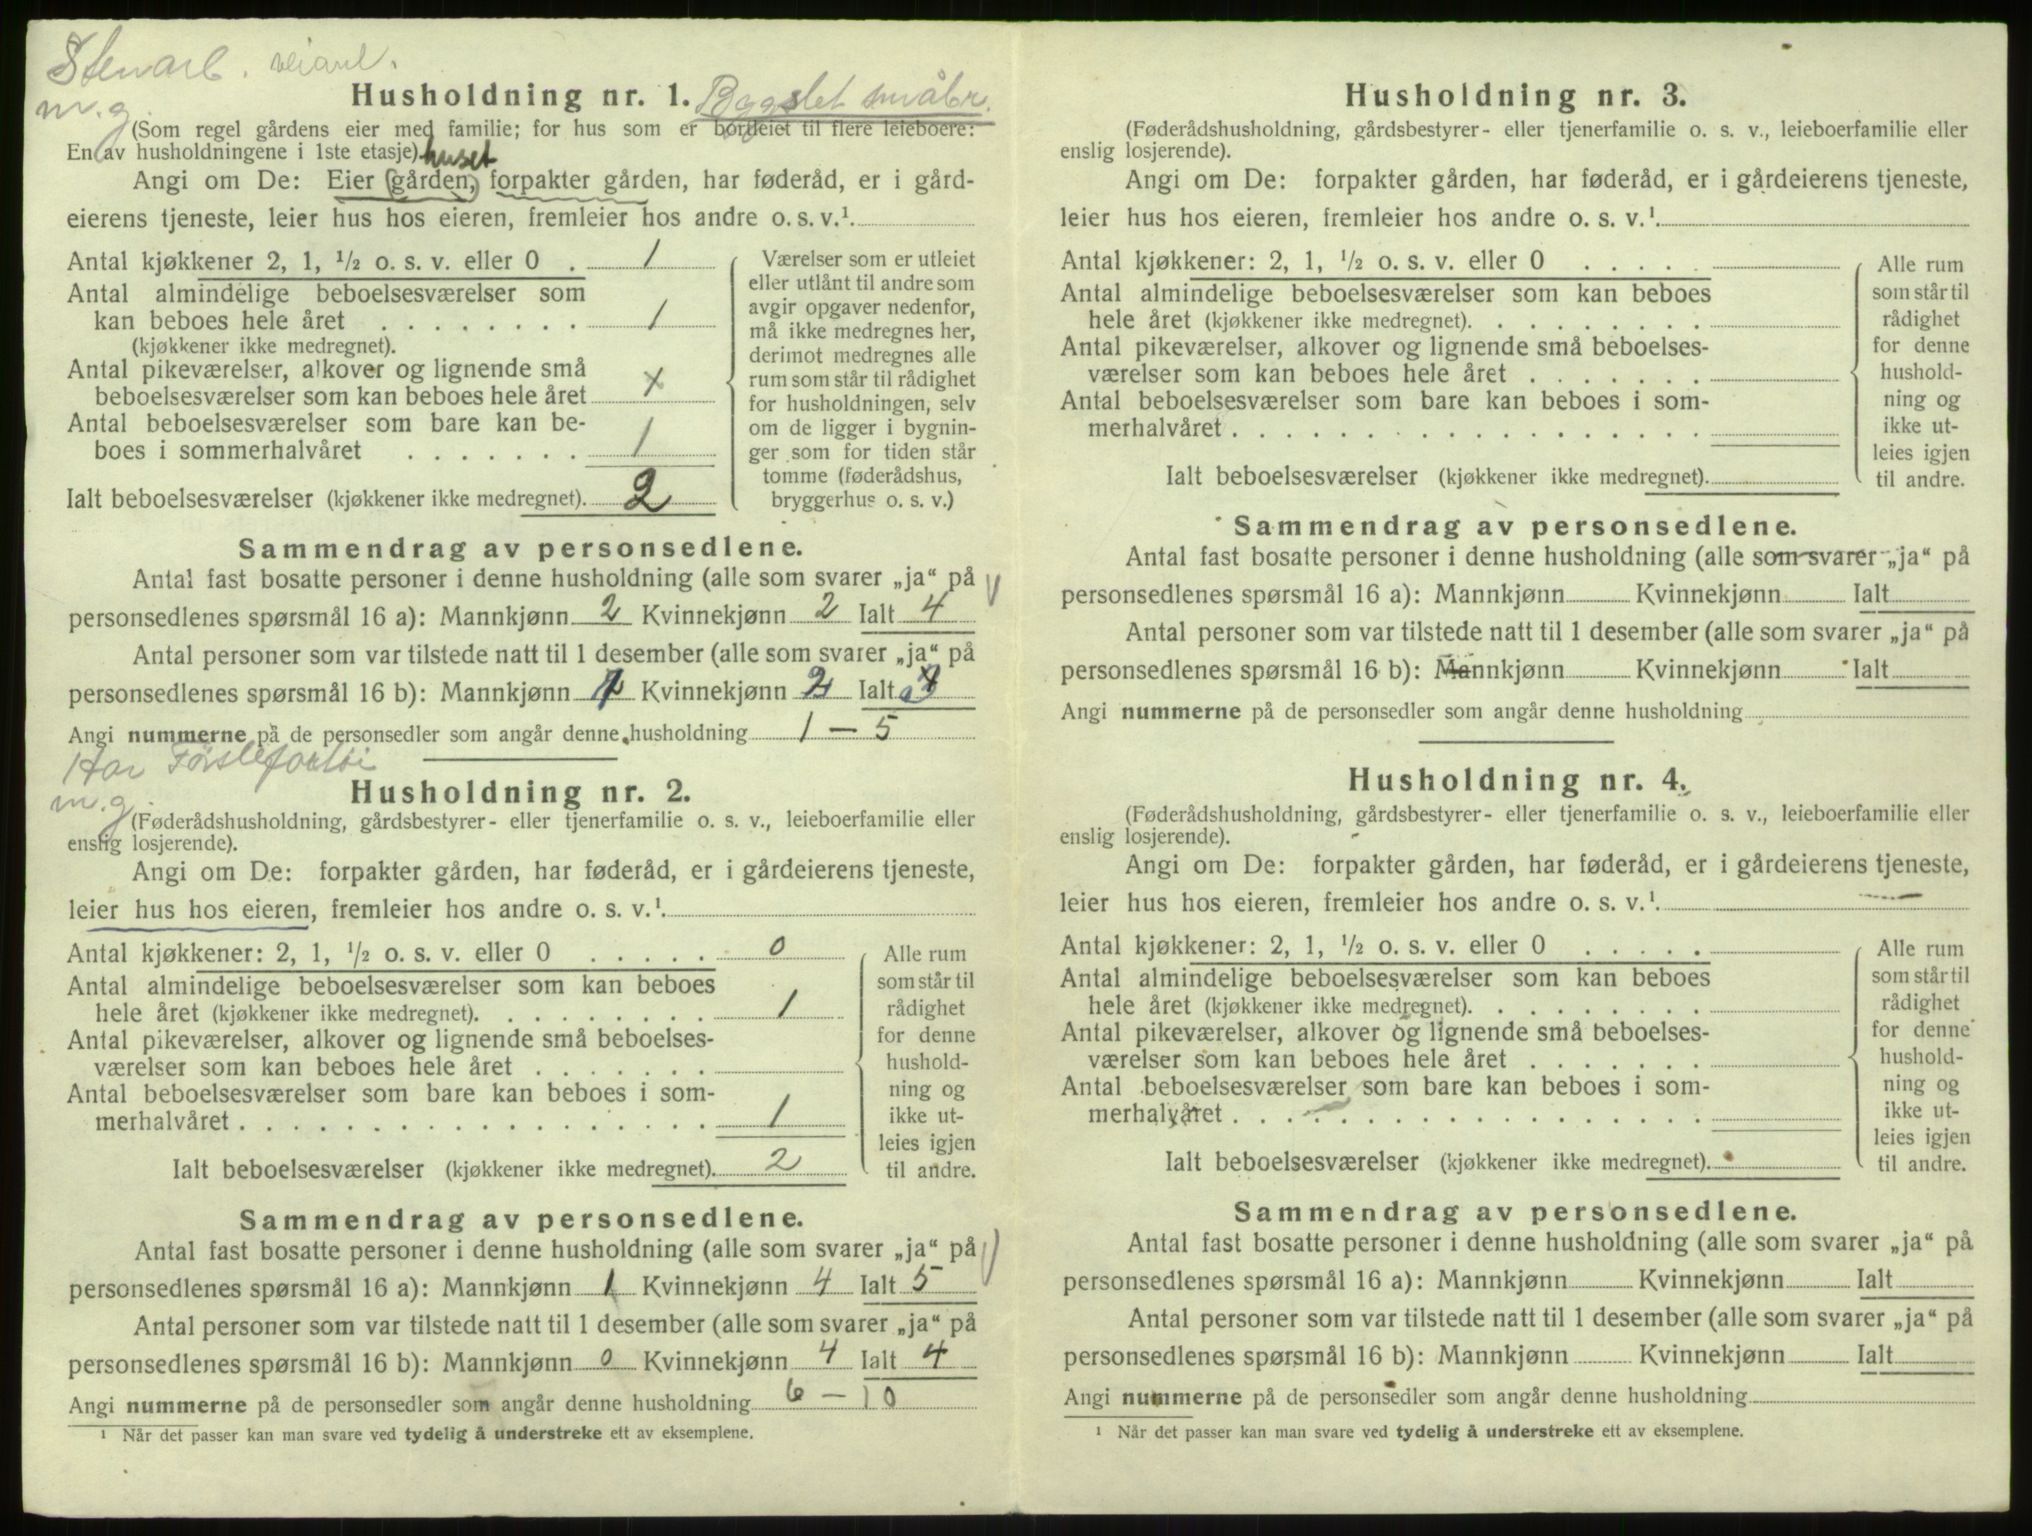 Stenarb. veianl.
m.g.
Husholdning nr. 1. Bygslet småbr.
(Som regel gårdens eier med familie; for hus som er bortleiet til flere leieboere:
En av husholdningene i 1ste etasje).
huset
Angi om De: Eier (gården,) forpakter gården, har føderåd, er i gård-
eierens tjeneste, leier hus hos eieren, fremleier hos andre o. s. v.¹
Antal kjøkkener 2, 1, ½ o. s. v. eller 0 . 1
Antal almindelige beboelsesværelser som
kan beboes hele året . . . . . . . . 1
(kjøkkener ikke medregnet).
Antal pikeværelser, alkover og lignende små
beboelsesværelser som kan beboes hele året x
Antal beboelsesværelser som bare kan be-
boes i sommerhalvåret . . . . . . . 1
Ialt beboelsesværelser (kjøkkener ikke medregnet). 2
Værelser som er utleiet
eller utlånt til andre som
avgir opgaver nedenfor,
må ikke medregnes her,
derimot medregnes alle
rum som står til rådighet
for husholdningen, selv
om de ligger i bygnin-
ger som for tiden står
tomme (føderådshus,
bryggerhus o. s. v.)
Sammendrag av personsedlene.
Antal fast bosatte personer i denne husholdning (alle som svarer „ja“ på
personsedlenes spørsmål 16 a): Mannkjønn 2 Kvinnekjønn 2 Ialt 4
Antal personer som var tilstede natt til 1 desember (alle som svarer „ja“ på
personsedlenes spørsmål 16 b): Mannkjønn 1 Kvinnekjønn 2 Ialt 3
Angi nummerne på de personsedler som angår denne husholdning 1 — 5
Har
m.g.
Husholdning nr. 2.
(Føderådshusholdning, gårdsbestyrer- eller tjenerfamilie o. s. v., leieboerfamilie eller
enslig losjerende).
Angi om De: forpakter gården, har føderåd, er i gårdeierens tjeneste,
leier hus hos eieren, fremleier hos andre o. s. v.¹
Antal kjøkkener: 2, 1, ½ o. s. v. eller 0 . . . . . 0
Antal almindelige beboelsesværelser som kan beboes
hele året (kjøkkener ikke medregnet). . . . . . . . . 1
Antal pikeværelser, alkover og lignende små beboelses-
værelser som kan beboes hele året . . . . . . .
Antal beboelsesværelser som bare kan beboes i som-
merhalvåret . . . . . . . . . . . . . . . . . . 1
Ialt beboelsesværelser (kjøkkener ikke medregnet). 2
Alle rum
som står til
rådighet
for denne
hushold-
ning og
ikke ut-
leies igjen
til andre.
Sammendrag av personsedlene.
Antal fast bosatte personer i denne husholdning (alle som svarer „ja“ på
personsedlenes spørsmål 16 a): Mannkjønn 1 Kvinnekjønn 4 Ialt 5
Antal personer som var tilstede natt til 1 desember (alle som svarer „ja“ på
personsedlenes spørsmål 16 b): Mannkjønn 0 Kvinnekjønn 4 Ialt 4
Angi nummerne på de personsedler som angår denne husholdning 6 — 10
¹ Når det passer kan man svare ved tydelig å understreke ett av eksemplene.
Husholdning nr. 3.
(Føderådshusholdning, gårdsbestyrer- eller tjenerfamilie o. s. v., leieboerfamilie eller
enslig losjerende).
Angi om De: forpakter gården, har føderåd, er i gårdeierens tjeneste,
leier hus hos eieren, fremleier hos andre o. s. v.¹
Antal kjøkkener: 2, 1, ½ o. s. v. eller 0 . . . . .
Antal almindelige beboelsesværelser som kan beboes
hele året (kjøkkener ikke medregnet). . . . . . . . .
Antal pikeværelser, alkover og lignende små beboelses-
værelser som kan beboes hele året . . . . . . .
Antal beboelsesværelser som bare kan beboes i som-
merhalvåret . . . . . . . . . . . . . . . . . .
Ialt beboelsesværelser (kjøkkener ikke medregnet).
Alle rum
som står til
rådighet
for denne
hushold-
ning og
ikke ut-
leies igjen
til andre.
Sammendrag av personsedlene.
Antal fast bosatte personer i denne husholdning (alle som svarer „ja“ på
personsedlenes spørsmål 16 a): Mannkjønn Kvinnekjønn Ialt
Antal personer som var tilstede natt til 1 desember (alle som svarer „ja“ på
personsedlenes spørsmål 16 b): Mannkjønn Kvinnekjønn Ialt
Angi nummerne på de personsedler som angår denne husholdning
Husholdning nr. 4.
(Føderådshusholdning, gårdsbestyrer- eller tjenerfamilie o. s. v., leieboerfamilie eller
enslig losjerende).
Angi om De: forpakter gården, har føderåd, er i gårdeierens tjeneste,
leier hus hos eieren, fremleier hos andre o. s. v.¹
Antal kjøkkener: 2, 1, ½ o. s. v. eller 0 . . . . .
Antal almindelige beboelsesværelser som kan beboes
hele året (kjøkkener ikke medregnet). . . . . . . . .
Antal pikeværelser, alkover og lignende små beboelses-
værelser som kan beboes hele året . . . . . . .
Antal beboelsesværelser som bare kan beboes i som-
merhalvåret . . . . . . . . . . . . . . . . . .
Ialt beboelsesværelser (kjøkkener ikke medregnet).
Alle rum
som står til
rådighet
for denne
hushold-
ning og
ikke ut-
leies igjen
til andre.
Sammendrag av personsedlene.
Antal fast bosatte personer i denne husholdning (alle som svarer „ja“ på
personsedlenes spørsmål 16 a): Mannkjønn Kvinnekjønn Ialt
Antal personer som var tilstede natt til 1 desember (alle som svarer „ja“ på
personsedlenes spørsmål 16 b): Mannkjønn Kvinnekjønn Ialt
Angi nummerne på de personsedler som angår denne husholdning
¹ Når det passer kan man svare ved tydelig å understreke ett av eksemplene.